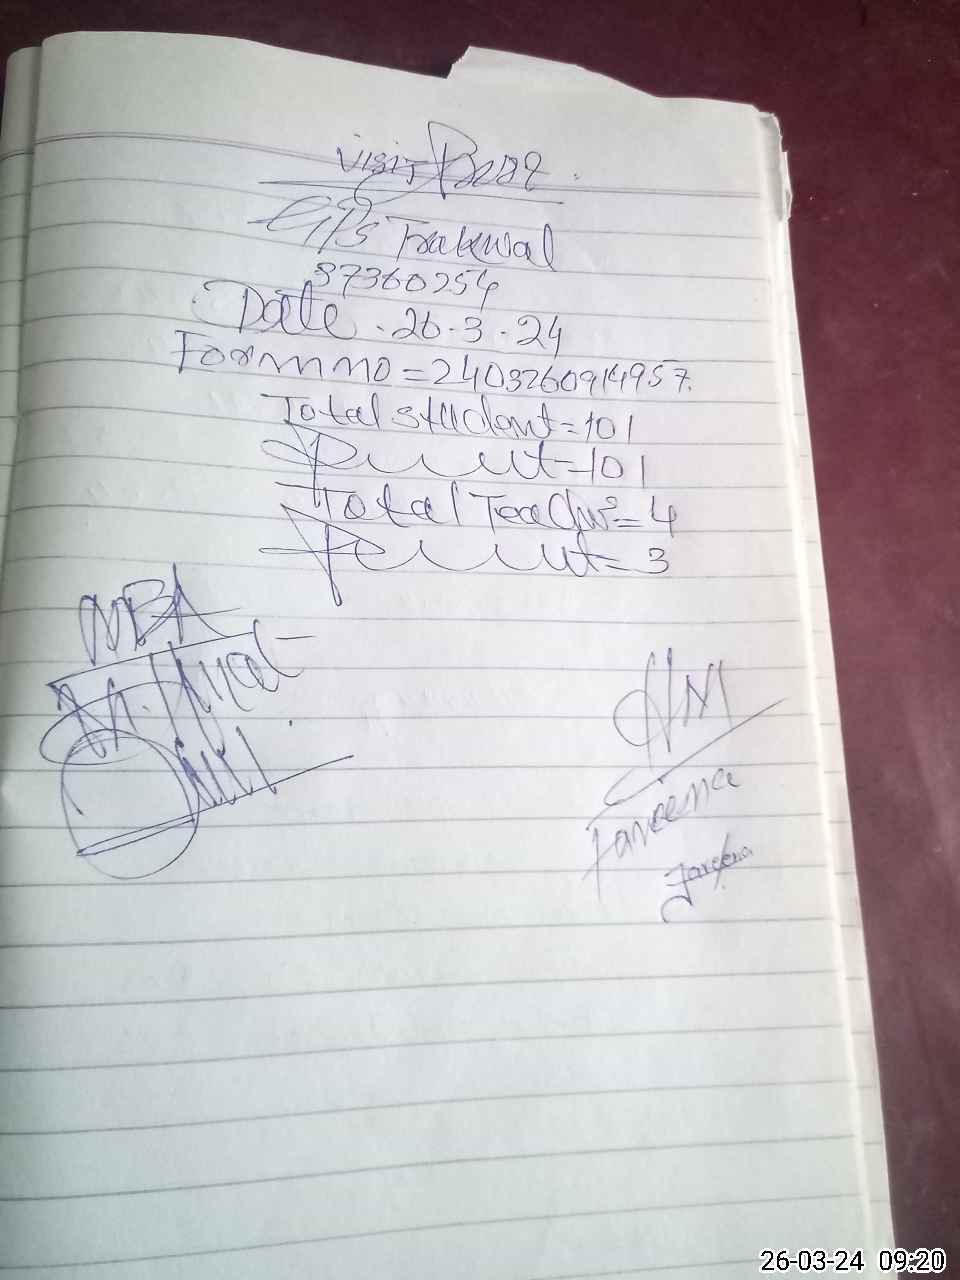 Visit
GPS Trakwal
37360254
Date . 26.3.24
Form no = 240326091957.
Total student = 101
Present = 101
Total Teacher = 4
Present = 3
HM
Fareena
Fareena
26-03-24 09:20